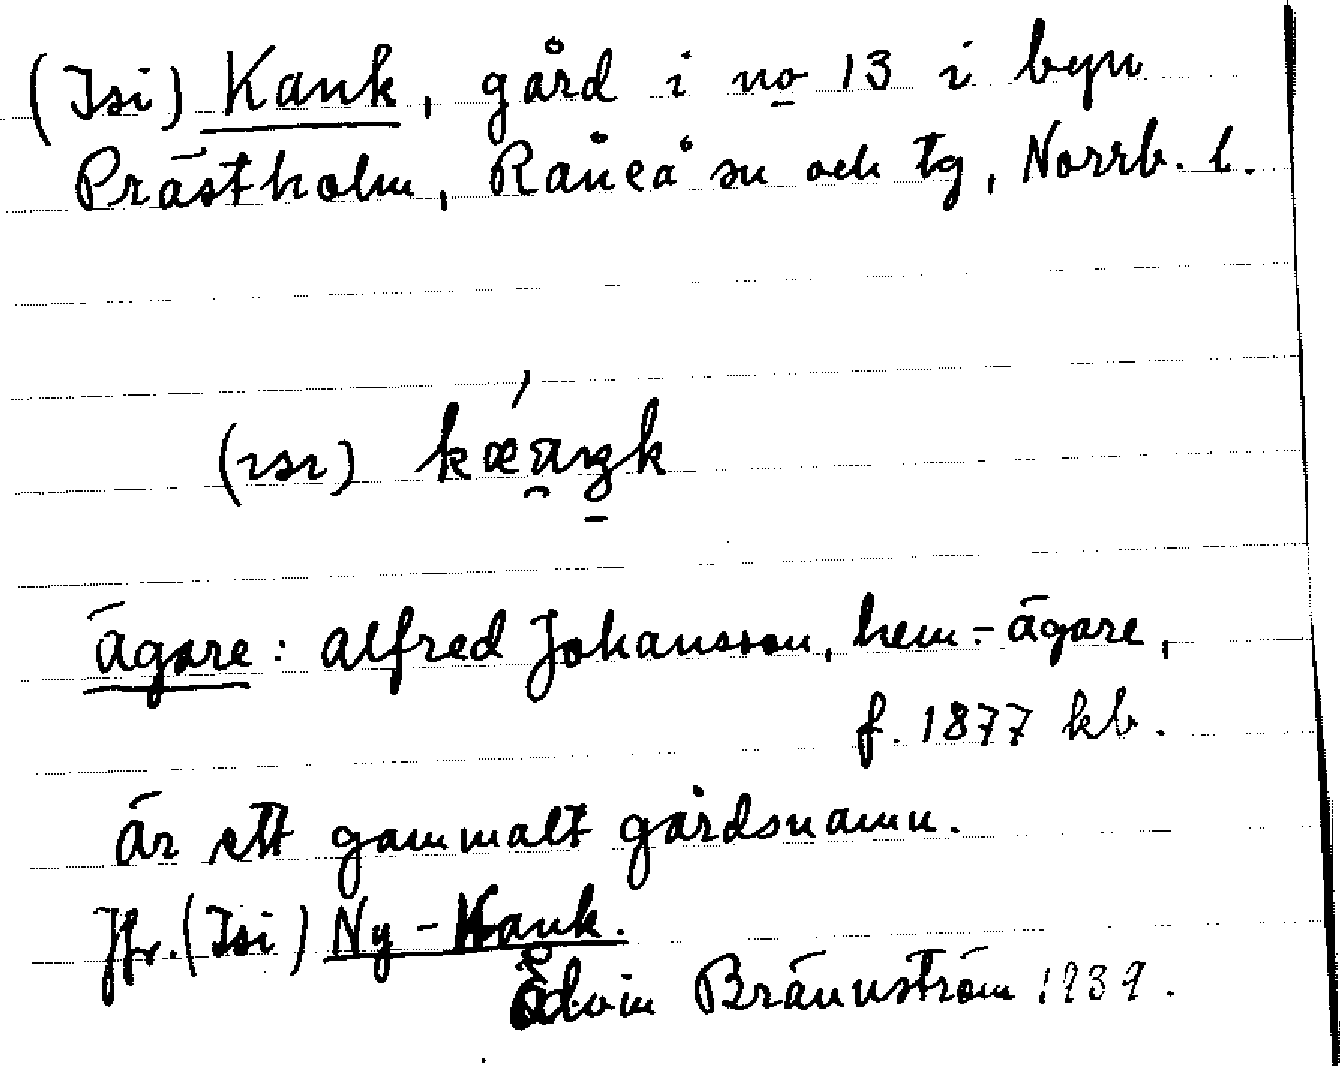 (Isi) Kank, gård i no 13 i byn
Prästholm, Råneå sn och tg, Norrb. l.
(ısı) kæ̀ŋk
Ägare: Alfred Johansson, hem.-ägare,
f. 1877 kb.
Är ett gammalt gårdsnamn.
Jfr. (Isi) Ny-Kank.
Edvin Brännström 1939.